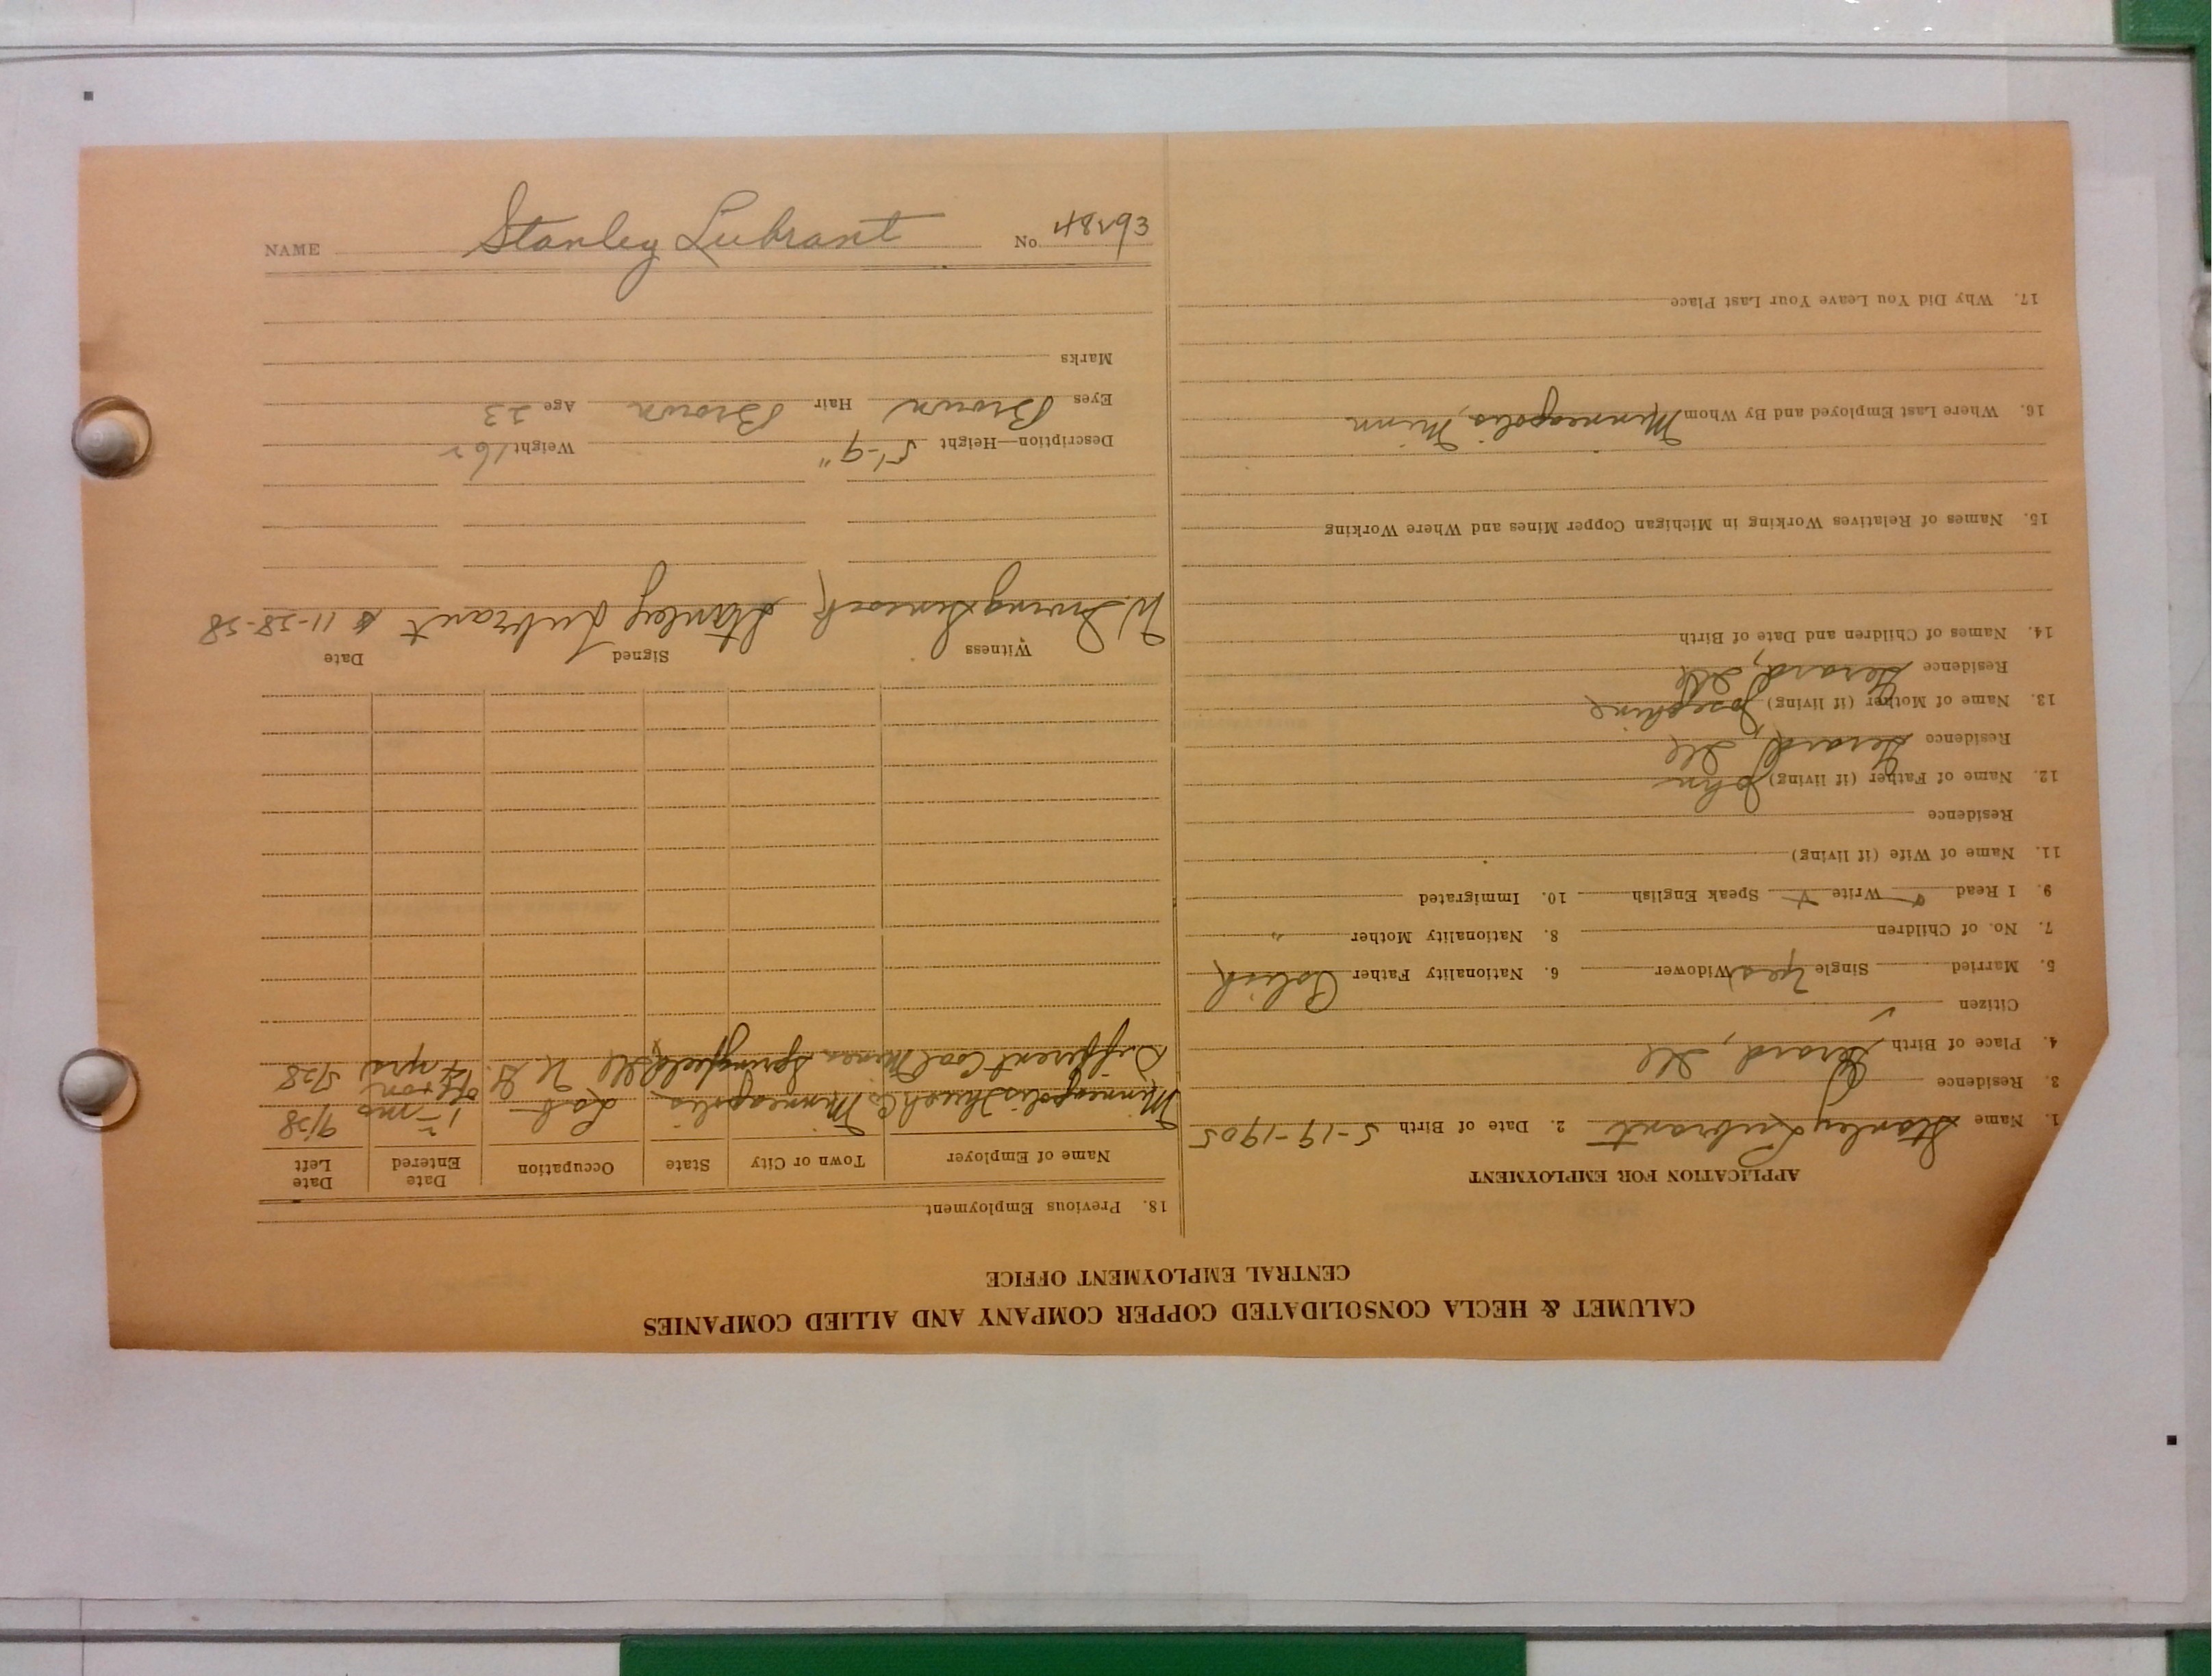 CALUMET & HECLA CONSOLIDATED COPPER COMPANY AND ALLIED COMPANIES
CENTRAL EMPLOYMENT OFFICE
APPLICATION FOR EMPLOYMENT
1. Name Stanley Lubrant 2. Date of Birth 5-19-1905
3. Residence
4. Place of Birth Girard, Ill
Citizen ✓
5. Married Single Yes Widower 6. Nationality Father Polish
7. No. of Children 8. Nationality Mother "
9. I Read Write Speak English 10. Immigrated
11. Name of Wife (if living)
Residence
12. Name of Father (if living) John
Residence Girard, Ill
13. Name of Mother (if living) Josephine
Residence Girard, Ill
14. Names of Children and Date of Birth
15. Names of Relatives Working in Michigan Copper Mines and Where Working
16. Where Last Employed and By Whom Minneapolis, Minn
17. Why Did You Leave Your Last Place
18. Previous Employment
Name of Employer Town or City State Occupation Date Entered Date Left
Minneapolis Co Minneapolis Lab 9/28
Different Coal Mines Springfield, Ill U.G. 4 yrs 5/28
off + on
Witness Signed Date
W. Irving Stanley Lubrant 11-28-28
Description—Height 5'-9" Weight 162
Eyes Brown Hair Brown Age 23
Marks
NAME Stanley Lubrant No. 48293